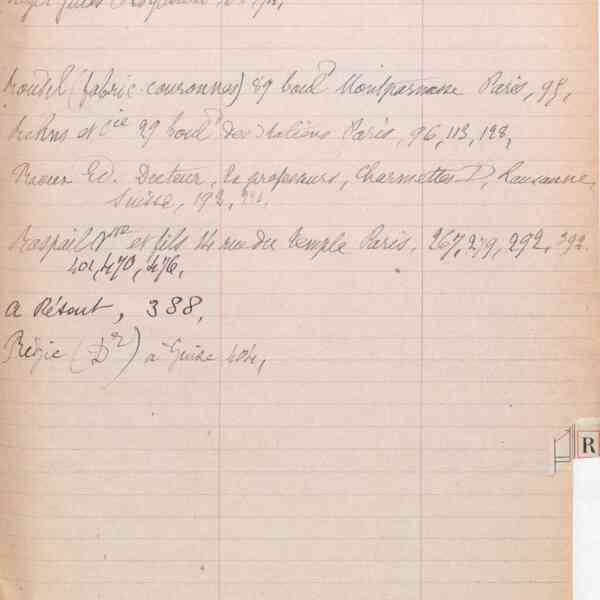 (fabric. couronnes) 89 boul^d Montparnasse Paris, 95,
et Cie 29 boul^d des Italiens Paris, 96, 113, 128,
Raoux Ed. Docteur, Ex professeurs, Charmettes D, Lausanne,
Suisse, 192,
Raspail V^ve et fils 14 rue du Temple Paris, 267, 279, 292, 392.
401, 470, 476,
a Résout, 388,
Régie (D^r) a Guise 404,
R